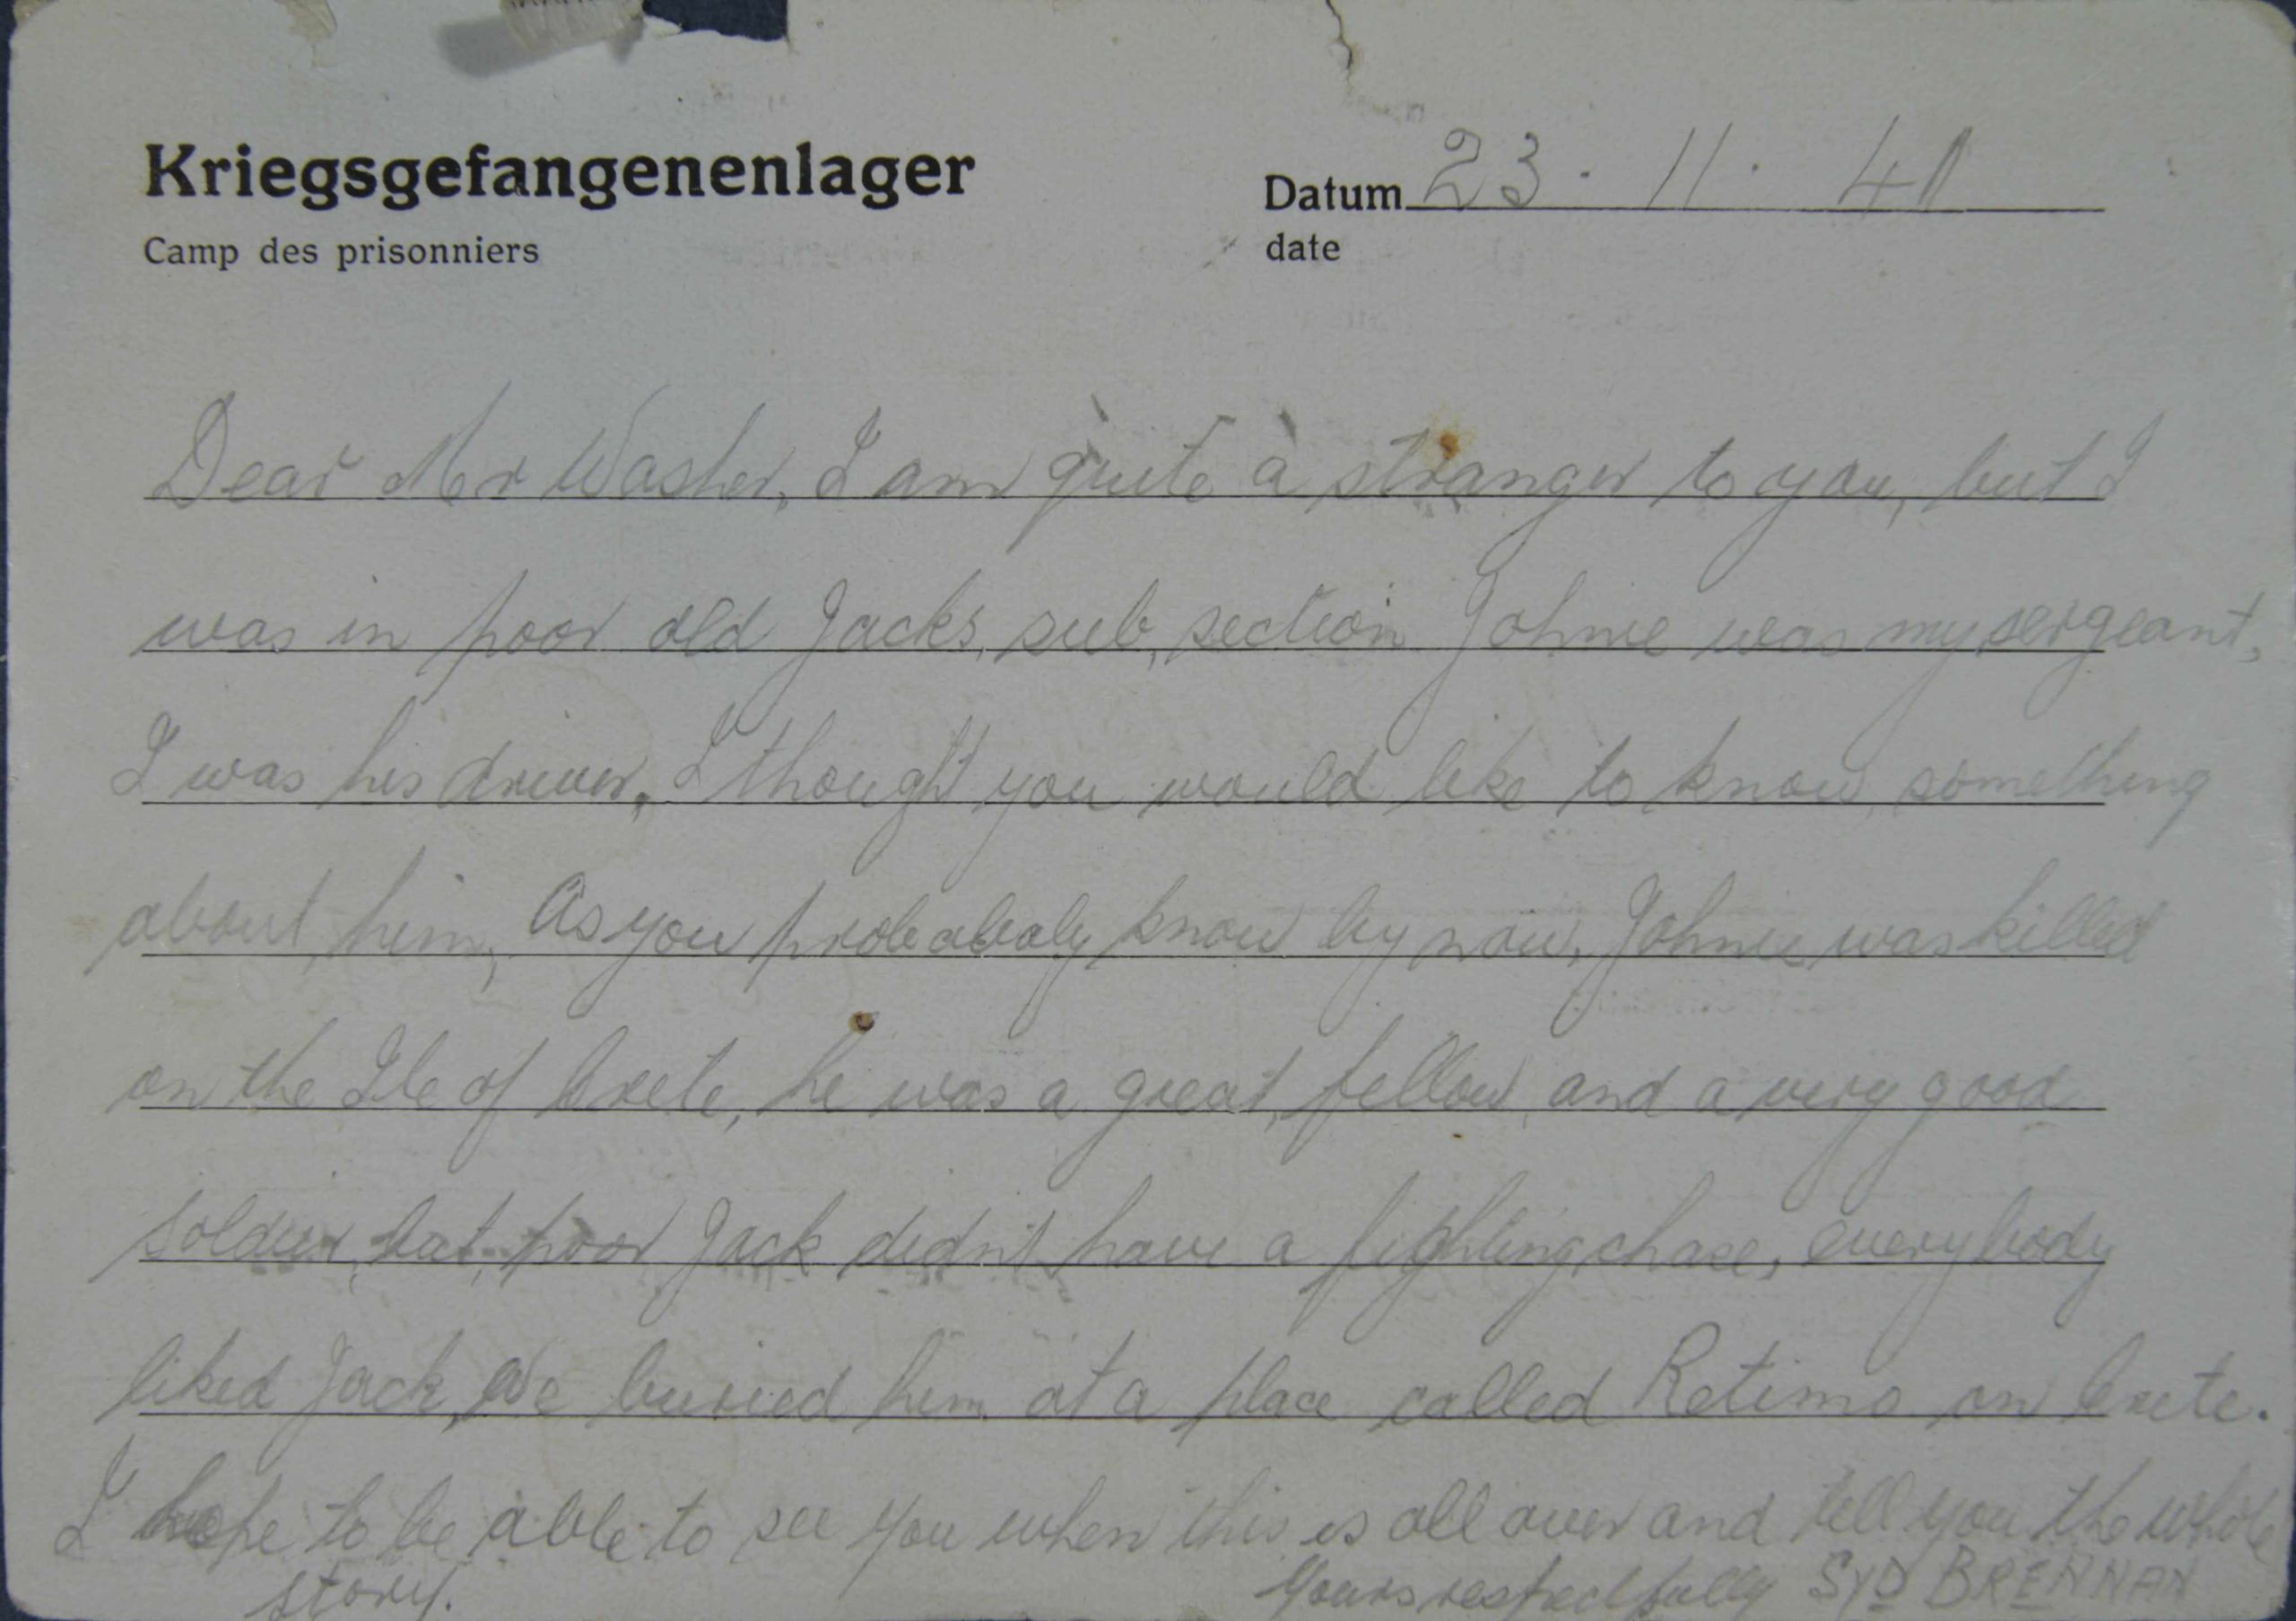 Kriegsgefangenenlager
Camp des prisonniers
Datum 23 · 11 · 41
date
Dear Mr Washer, I am quite a stranger to you, but I
was in poor old Jacks, sub, section Johnie was my sergeant,
I was his driver, I thought you would like to know something
about him, As you probabaly know by now, Johnie was killed
on the Ile of Crete, he was a great fellow and a very good
soldier, but, poor Jack didn't have a fighting chace, everybody
liked Jack, We buried him at a place called Retimo on Crete.
I hope to be able to see you when this is all over and tell you the whole
story.
Yours respectfully SYD BRENNAN